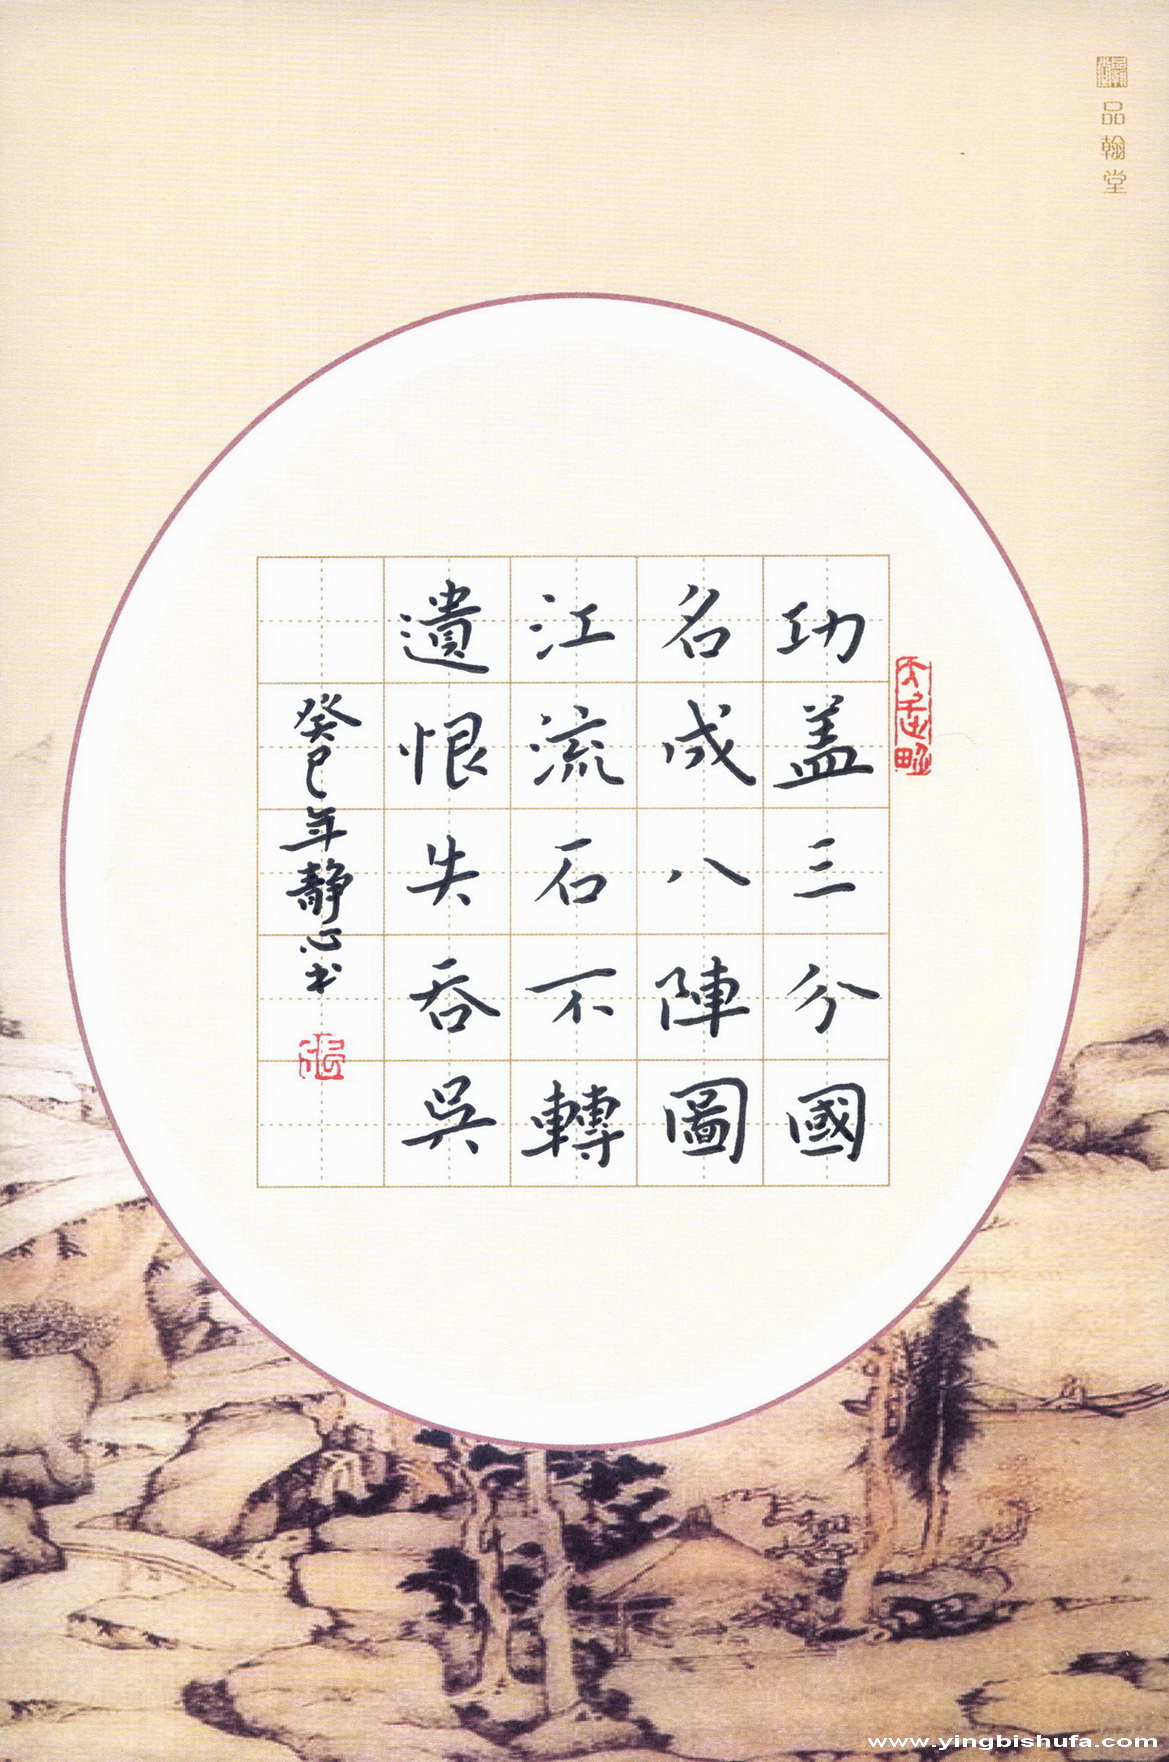 品翰堂
功盖三分國
名成八陣圖
江流石不轉
遺恨失吞吳
癸巳年靜心书
www.yingbishufa.com